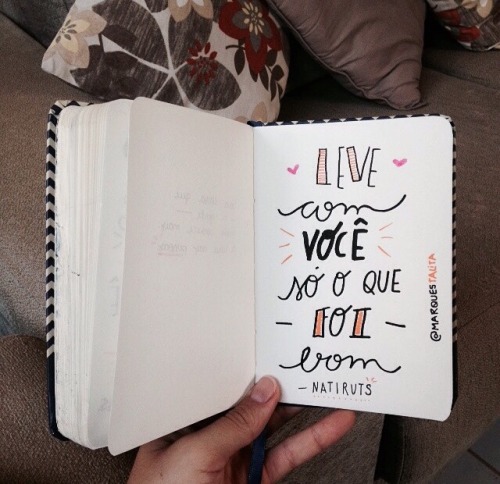 LEVE
com
VOCÊ
SÓ O QUE
- FOI -
bom
- NATIRUTS
@MARQUESTALITA